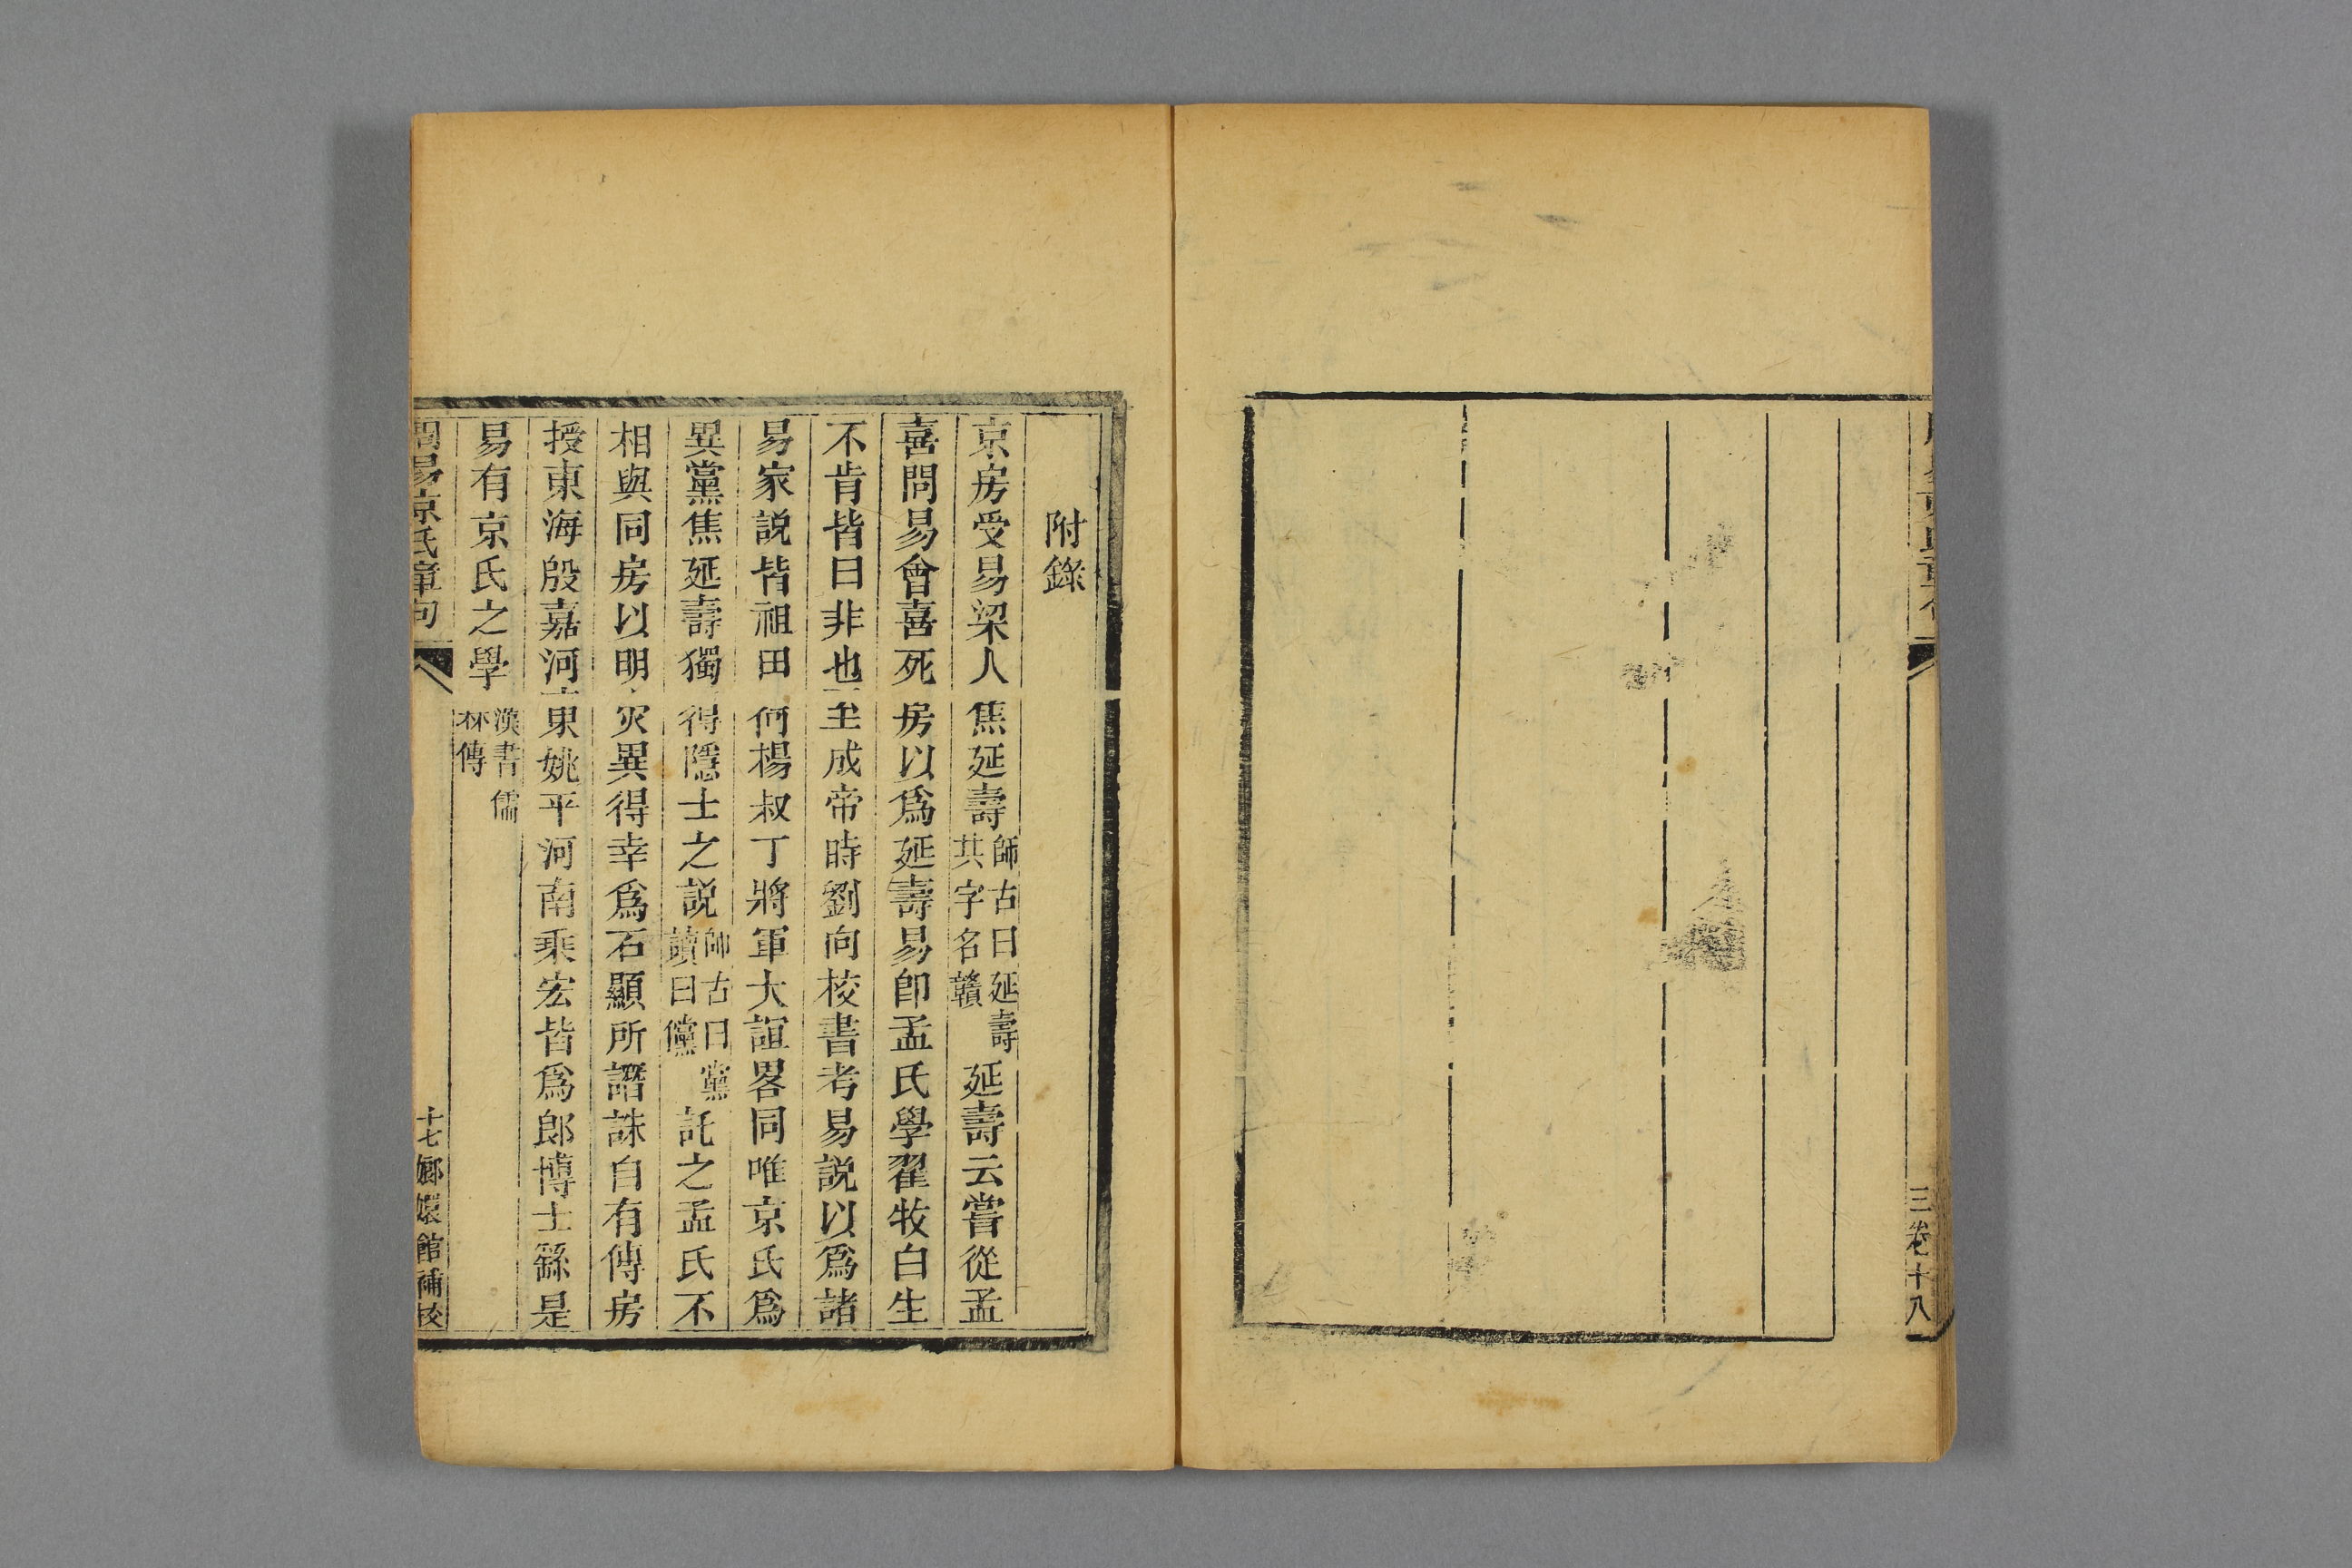 三卷十八
附錄
京房受易梁人焦延壽師古曰延壽其字名贛延壽云嘗從孟
喜問易會喜死房以爲延壽易卽孟氏學翟牧白生
不肯皆曰非也至成帝時劉向校書考易說以爲諸
易家說皆祖田何楊叔丁將軍大誼畧同唯京氏爲
異黨焦延壽獨得隱士之說師古曰黨讀曰儻託之孟氏不
相與同房以明灾異得幸爲石顯所譖誅自有傳房
授東海殷嘉河東姚平河南乘宏皆爲郎博士繇是
易有京氏之學漢書儒林傳
周易京氏章句
十七 嫏嬛館補校